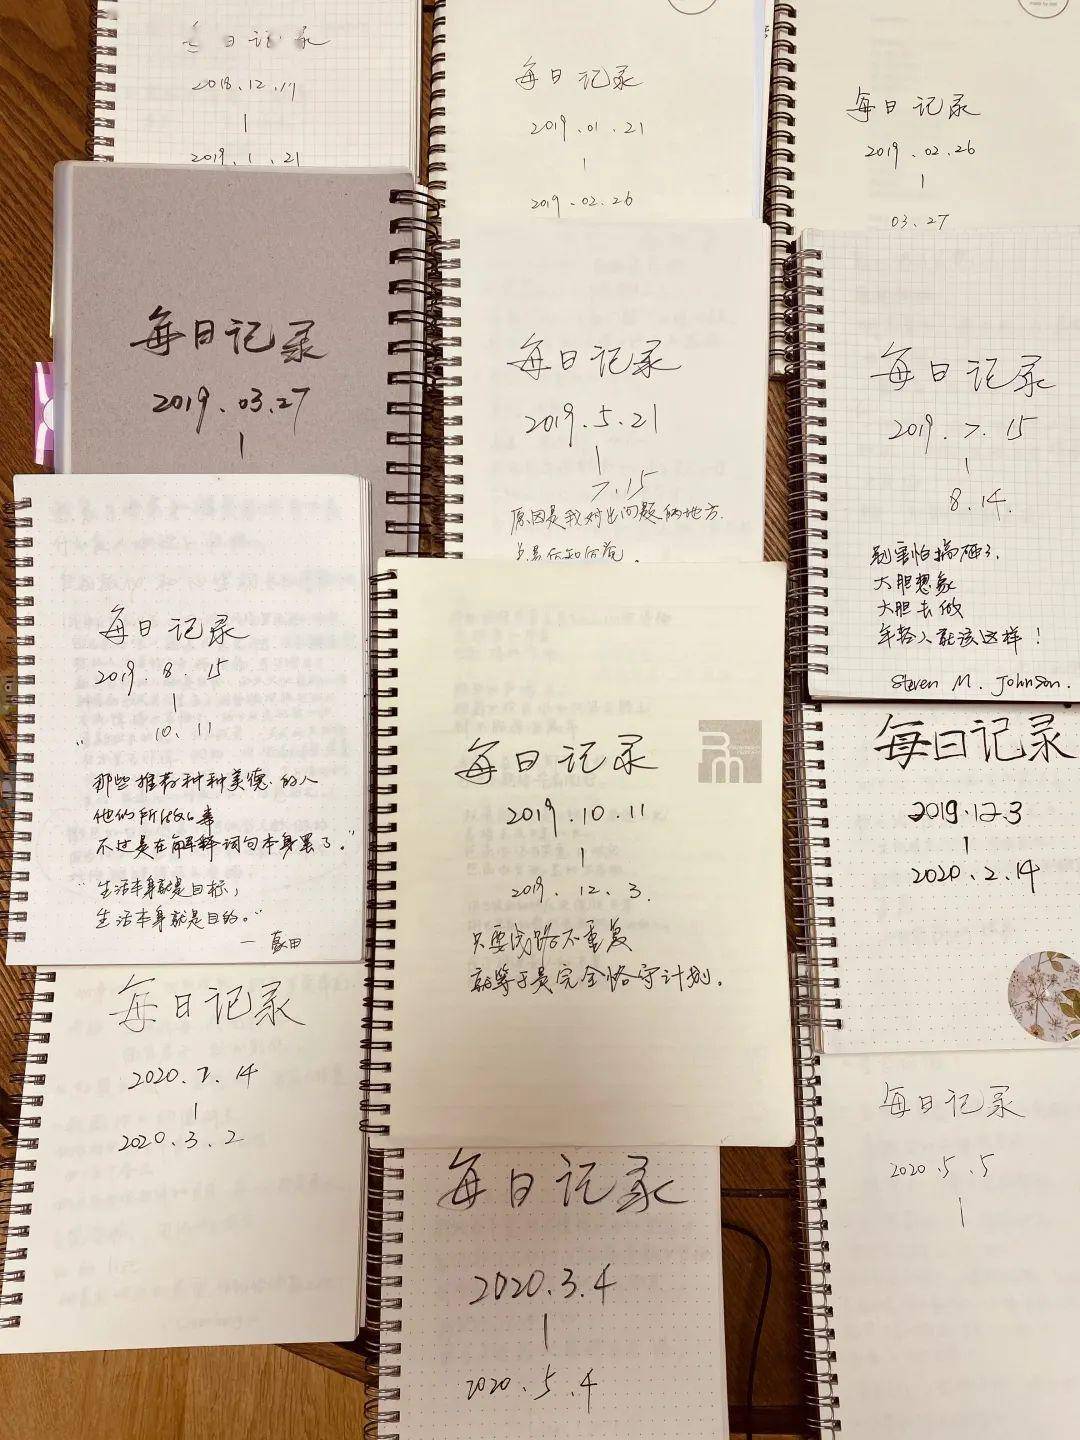 每日记录
2018.12.17
2019.1.21
每日记录
2019.01.21
2019.02.26
每日记录
2019.02.26
03.27
每日记录
2019.03.27
每日记录
2019.5.21
7.15
原因是我对出问题的地方
每日记录
2019.7.15
8.14.
别害怕搞砸了,
大胆想象
大胆去做
年轻人就该这样!
Steven M. Johnson.
每日记录
2019.8.15
10.11
"那些推荐种种美德的人
他们所做的事
不过是在解释词句本身罢了。"
"生活本身就是目标,
生活本身就是目的。"
—蒙田
每日记录
2019.10.11
2019.12.3.
只要线路不重复
就等于是完全恪守计划。
每日记录
2019.12.3
2020.2.14
每日记录
2020.2.14
2020.3.2
每日记录
2020.3.4
2020.5.4
每日记录
2020.5.5